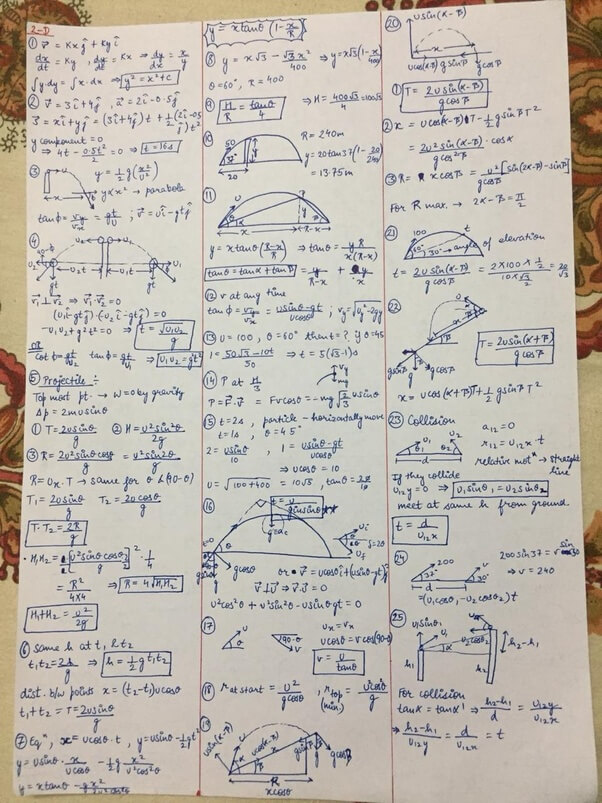 2-D
① v⃗ = Kxĵ + Kyî
dx/dt = Ky , dy/dt = Kx ⇒ dy/dx = x/y
∫y dy = ∫x·dx ⇒ y² = x² + C
② v⃗ = 3î + 4ĵ , a⃗ = 2î - 0.5ĵ
y component = 0
⇒ 4t - 0.5t²/2 = 0 ⇒ t = 16s
③
y = 1/2 g(x²/u²)
y ∝ x² → parabola
tanϕ = vy/vx = gt/u ; v⃗ = uî - gtĵ
④
v⃗₁ ⊥ v⃗₂ ⇒ v⃗₁·v⃗₂ = 0
(u₁î - gtĵ)·(-u₂î - gtĵ) = 0
-u₁u₂ + g²t² = 0 ⇒ t = √u₁u₂/g
OR
cotϕ = gt/u₂ tanϕ = gt/u₁ ⇒ u₁u₂ = gt²
⑤ Projectile :-
Top most pt. → W = 0 by gravity
Δp = 2mu sinθ
① T = 2u sinθ/g ② H = u² sin²θ/2g
③ R = 2u² sinθ cosθ/g = u² sin2θ/g
R = Ux·T → same for θ & (90-θ)
T₁ = 2u sinθ/g T₂ = 2u cosθ/g
T·T₂ = 2R/g
H₁H₂ = [u² sinθ cosθ/g]² · 1/4
= R²/4x4 ⇒ R = 4√H₁H₂
H₁+H₂ = u²/2g
⑥ same h at t₁ & t₂
t₁t₂ = 2h/g ⇒ h = 1/2 g t₁t₂
dist. b/w points x = (t₂-t₁)u cosθ
t₁+t₂ = T = 2u sinθ/g
⑦ Eqⁿ, x = u cosθ·t , y = u sinθt - 1/2 gt²
y = u sinθ · x/u cosθ - 1/2 g x²/u² cos²θ
y = x tanθ - gx²/2u² cos²θ
y = x tanθ (1 - x/R)
⑧ y = x√3 - √3x²/400 ⇒ y = x√3(1 - x/400)
θ = 60°, R = 400
⑨ H/R = tanθ/4 ⇒ H = 400√3/4 = 100√3
⑩
50
37°
20
y
R = 240m
y = 20 tan37 (1 - 20/240)
= 13.75 m
⑪
y = x tanθ (R-x/R) ⇒ tanθ = yR/x(R-x)
tanθ = tanα + tanβ = y/R-x + y/x
⑫ v at any time
tanϕ = vy/vx = u sinθ - gt/u cosθ ; vy = √uy² - 2gy
⑬ u = 100 , θ = 60° then t = ? if θ = 45
1 = 50√3 - 10t/50 ⇒ t = 5(√3-1)s
⑭ P at H/3
P = F⃗·v⃗ = Fv cosθ = -mg √2/3 u sinθ
⑮ t = 2s, particle - horizontally move
t = 1s , θ = 45°
2 = u sinθ/10 , 1 = u sinθ - gt/u cosθ
⇒ u cosθ = 10
u = √100+400 = 10√5
⑯
or v⃗ = u cosθî + (u sinθ - gt)ĵ
v⃗ ⊥ u⃗ ⇒ v⃗·u⃗ = 0
u² cos²θ + u² sin²θ - u sinθ gt = 0
⑰
ux = vx
u cosθ = v cos(90-θ)
v = u/tanθ
⑱ r at start = u²/g cosθ , r top (min.) = u² cos²θ/g
⑲
u sin(α-β)
u cos(α-β)
g sinβ
g cosβ
R
x cosβ
⑳
u sin(α-β)
x
u cos(α-β) g sinβ g cosβ
① T = 2u sin(α-β)/g cosβ
② x = u cos(α-β)T - 1/2 g sinβ T²
= 2u² sin(α-β)/g cos²β · cosα
③ R = x cosβ = u²/g cosβ [sin(2α-β) - sinβ]
For R max. → 2α - β = π/2
㉑
100
30° → angle of elevation
t = 2u sin(α-β)/g cosβ = 2x100x1/2/10x√3/2 = 20/√3
㉒
T = 2u sin(α+β)/g cosβ
g sinβ
g cosβ
x = u cos(α+β)T + 1/2 g sinβ T²
㉓ Collision
a₁₂ = 0
r₁₂ = U₁₂x·t
relative motⁿ → straight line
d
If they collide
U₁₂y = 0 ⇒ u₁ sinθ₁ = u₂ sinθ₂
meet at same h from ground.
t = d/U₁₂x
㉔
200
37°
30°
d
200 sin37 = v sin30
⇒ v = 240
= (u₁ cosθ₁ - u₂ cosθ₂)t
㉕
u₁ sinθ₁
u₂ cosθ₂
h₁
h₂
h₂-h₁
d
For collision
tanα = tanα₁ ⇒ h₂-h₁/d = U₁₂y/U₁₂x
⇒ h₂-h₁/U₁₂y = d/U₁₂x = t